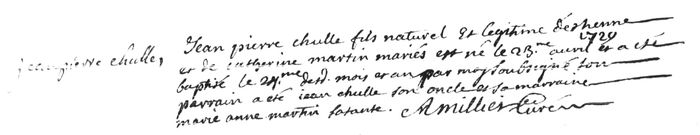 jean pierre chulle,
Jean pierre chulle fils naturel Et legitime déthienne
et de catherine martin mariés est né le 23.me avril 1729 et a été
baptisé le 24.me desd. mois et an par moy soubsigné son
parrain a été jean chulle son oncle et sa marraine
marie anne martin sa tante. Amillier Curé